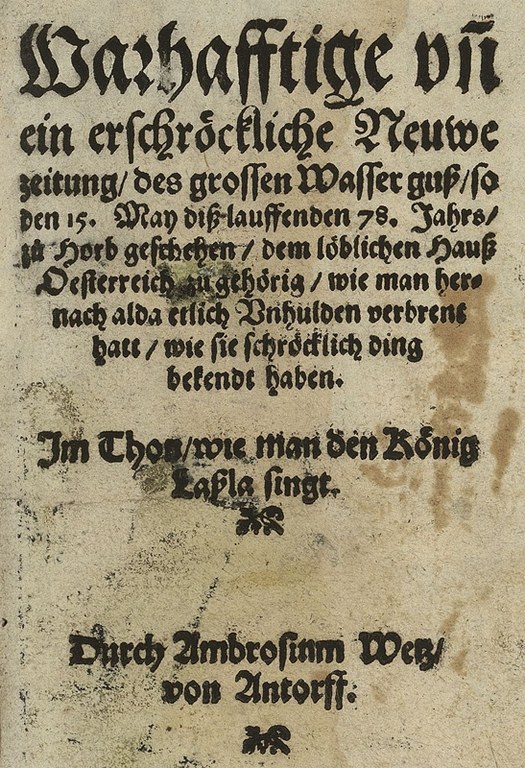 Warhafftige vñ
ein erschröckliche Neuwe
zeitung/ des grossen Wasser guß/ so
den 15. May diß lauffenden 78. Jahrs/
zů Horb geschehen/ dem löblichen Hauß
Oesterreich zů gehörig/ wie man her⸗
nach alda etlich Vnhulden verbrent
hatt/ wie sie schröcklich ding
bekendt haben.
Im Thon/ wie man den König
Laßla singt.
Durch Ambrosium Wetz/
von Antorff.